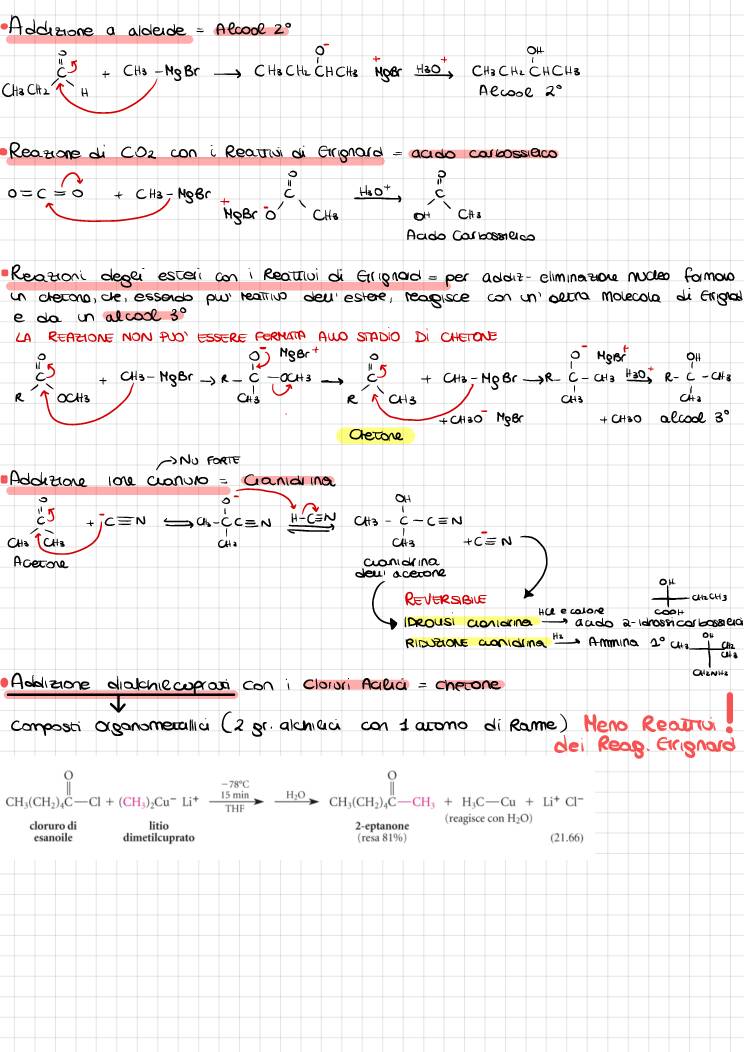 • Addizione a aldeide = Alcool 2°
O
C
CH3CH2 H + CH3 - MgBr → CH3CH2CHCH3 O⁻ ⁺MgBr H3O⁺ → CH3CH2CHCH3 OH
Alcool 2°
• Reazione di CO2 con i Reattivi di Grignard = acido carbossilico
O=C=O + CH3 - MgBr ⁺MgBr ⁻O C O CH3 H3O⁺ → O C OH CH3
Acido Carbossilico
• Reazioni degli esteri con i Reattivi di Grignard = per addiz- eliminazione nucleo formano
un chetone, che, essendo piu' reattivo dell'estere, reagisce con un' altra molecola di Grignard
e da un alcool 3°
LA REAZIONE NON PUO' ESSERE FERMATA ALLO STADIO DI CHETONE
O C R OCH3 + CH3 - MgBr → R - C - OCH3 O⁻ MgBr⁺ CH3 → O C R CH3 + CH3 - MgBr → R - C - CH3 O⁻ MgBr⁺ CH3 H3O⁺ → R - C - CH3 OH CH3
+ CH3O⁻ MgBr + CH3O alcool 3°
Chetone
→ NU FORTE
• Addizione ione cianuro = Cianidrina
O C CH3 CH3 + ⁻C≡N ⇌ CH3 - C C≡N O⁻ CH3 H-C≡N ⇌ CH3 - C - C≡N OH CH3 + ⁻C≡N
Acetone
cianidrina
dell' acetone
REVERSIBILE
IDROLISI cianidrina HCl e calore → acido 2-idrossicarbossilico OH CH2CH3 COOH
RIDUZIONE cianidrina H2 → Ammina 1° CH3 OH CH2 CH3 CH2NH2
• Addizione dialchilcuprati con i Cloruri Acilici = chetone
composti organometallici (2 gr. alchilici con 1 atomo di Rame) Meno Reattivi !
dei Reag. Grignard
O O
CH3(CH2)4C—Cl + (CH3)2Cu⁻ Li⁺ −78°C 15 min THF → H2O → CH3(CH2)4C—CH3 + H3C—Cu + Li⁺ Cl⁻
(reagisce con H2O)
cloruro di litio 2-eptanone
esanoile dimetilcuprato (resa 81%) (21.66)